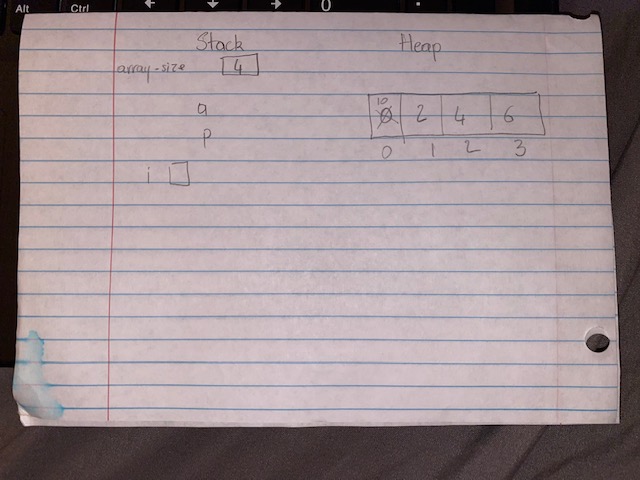 Alt Ctrl 0
Stack Heap
array-size 4
a 10 0 2 4 6
p 0 1 2 3
i